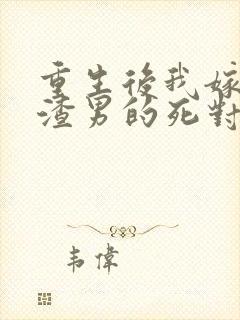 重生後我嫁
渣男的死對
韦偉